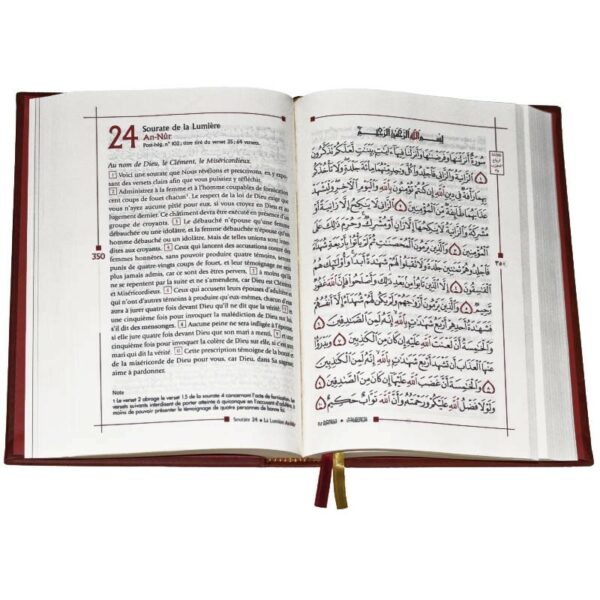 24
Sourate de la Lumière
An-Nûr
Post-hég. n° 102 ; titre tiré du verset 35 ; 64 versets.
Au nom de Dieu, le Clément, le Miséricordieux.
1 Voici une sourate que Nous révélons et prescrivons, en y expo-
sant des versets clairs afin que vous puissiez y réfléchir.
2 Administrez à la femme et à l'homme coupables de fornication
cent coups de fouet chacun¹. Le respect de la loi de Dieu exige que
vous n'ayez aucune pitié pour eux, si vous croyez en Dieu et au
Jugement dernier. Ce châtiment devra être exécuté en présence d'un
groupe de croyants. 3 Le débauché n'épouse qu'une femme
débauchée ou une idolâtre, et la femme débauchée n'épouse qu'un
homme débauché ou un idolâtre. Mais de telles unions sont inter-
dites aux croyants. 4 Ceux qui lancent des accusations contre des
femmes honnêtes, sans pouvoir produire quatre témoins, seront
punis de quatre-vingts coups de fouet, et leur témoignage ne sera
plus jamais admis, car ce sont des êtres pervers. 5 à moins qu'ils
ne se repentent par la suite et ne s'amendent, car Dieu est Clément
et Miséricordieux. 6 Ceux qui accusent leurs épouses d'adultère
qui n'ont d'autres témoins à produire qu'eux-mêmes, chacun d'eux
aura à jurer quatre fois devant Dieu qu'il ne dit que la vérité 7 et
une cinquième fois pour invoquer la malédiction de Dieu sur lui,
s'il dit des mensonges. 8 Aucune peine ne sera infligée à l'épouse
si elle jure quatre fois devant Dieu que son mari a menti, 9 et une
cinquième fois pour invoquer la colère de Dieu sur elle, si c'est son
mari qui dit la vérité. 10 Cette prescription témoigne de la bonté et
de la miséricorde de Dieu pour vous, car Dieu est Sage et aime
à pardonner.
350
Note
1 Le verset 2 abroge le verset 15 de la sourate 4 concernant l'acte de fornication. Les
versets suivants interdisent de porter atteinte à quiconque en l'accusant d'adultère à
moins de pouvoir présenter le témoignage de quatre personnes de bonne foi.
Sourate 24 • La Lumière An-Nûr
بِسْمِ اللَّهِ الرَّحْمَٰنِ الرَّحِيمِ
سُورَةٌ أَنزَلْنَاهَا وَفَرَضْنَاهَا وَأَنزَلْنَا فِيهَا آيَاتٍ بَيِّنَاتٍ لَّعَلَّكُمْ تَذَكَّرُونَ
١ الزَّانِيَةُ وَالزَّانِي فَاجْلِدُوا كُلَّ وَاحِدٍ مِّنْهُمَا مِائَةَ جَلْدَةٍ وَلَا تَأْخُذْكُم
بِهِمَا رَأْفَةٌ فِي دِينِ اللَّهِ إِن كُنتُمْ تُؤْمِنُونَ بِاللَّهِ وَالْيَوْمِ الْآخِرِ وَلْيَشْهَدْ
عَذَابَهُمَا طَائِفَةٌ مِّنَ الْمُؤْمِنِينَ ٢ الزَّانِي لَا يَنكِحُ إِلَّا زَانِيَةً أَوْ
مُشْرِكَةً وَالزَّانِيَةُ لَا يَنكِحُهَا إِلَّا زَانٍ أَوْ مُشْرِكٌ وَحُرِّمَ ذَٰلِكَ عَلَى
الْمُؤْمِنِينَ ٣ وَالَّذِينَ يَرْمُونَ الْمُحْصَنَاتِ ثُمَّ لَمْ يَأْتُوا بِأَرْبَعَةِ شُهَدَاءَ
فَاجْلِدُوهُمْ ثَمَانِينَ جَلْدَةً وَلَا تَقْبَلُوا لَهُمْ شَهَادَةً أَبَدًا وَأُولَٰئِكَ هُمُ
الْفَاسِقُونَ ٤ إِلَّا الَّذِينَ تَابُوا مِن بَعْدِ ذَٰلِكَ وَأَصْلَحُوا فَإِنَّ اللَّهَ غَفُورٌ
رَّحِيمٌ ٥ وَالَّذِينَ يَرْمُونَ أَزْوَاجَهُمْ وَلَمْ يَكُن لَّهُمْ شُهَدَاءُ إِلَّا أَنفُسُهُمْ
فَشَهَادَةُ أَحَدِهِمْ أَرْبَعُ شَهَادَاتٍ بِاللَّهِ إِنَّهُ لَمِنَ الصَّادِقِينَ ٦
وَالْخَامِسَةُ أَنَّ لَعْنَتَ اللَّهِ عَلَيْهِ إِن كَانَ مِنَ الْكَاذِبِينَ ٧ وَيَدْرَأُ
عَنْهَا الْعَذَابَ أَن تَشْهَدَ أَرْبَعَ شَهَادَاتٍ بِاللَّهِ إِنَّهُ لَمِنَ الْكَاذِبِينَ
٨ وَالْخَامِسَةَ أَنَّ غَضَبَ اللَّهِ عَلَيْهَا إِن كَانَ مِنَ الصَّادِقِينَ ٩
وَلَوْلَا فَضْلُ اللَّهِ عَلَيْكُمْ وَرَحْمَتُهُ وَأَنَّ اللَّهَ تَوَّابٌ حَكِيمٌ ١٠
٣٥٠